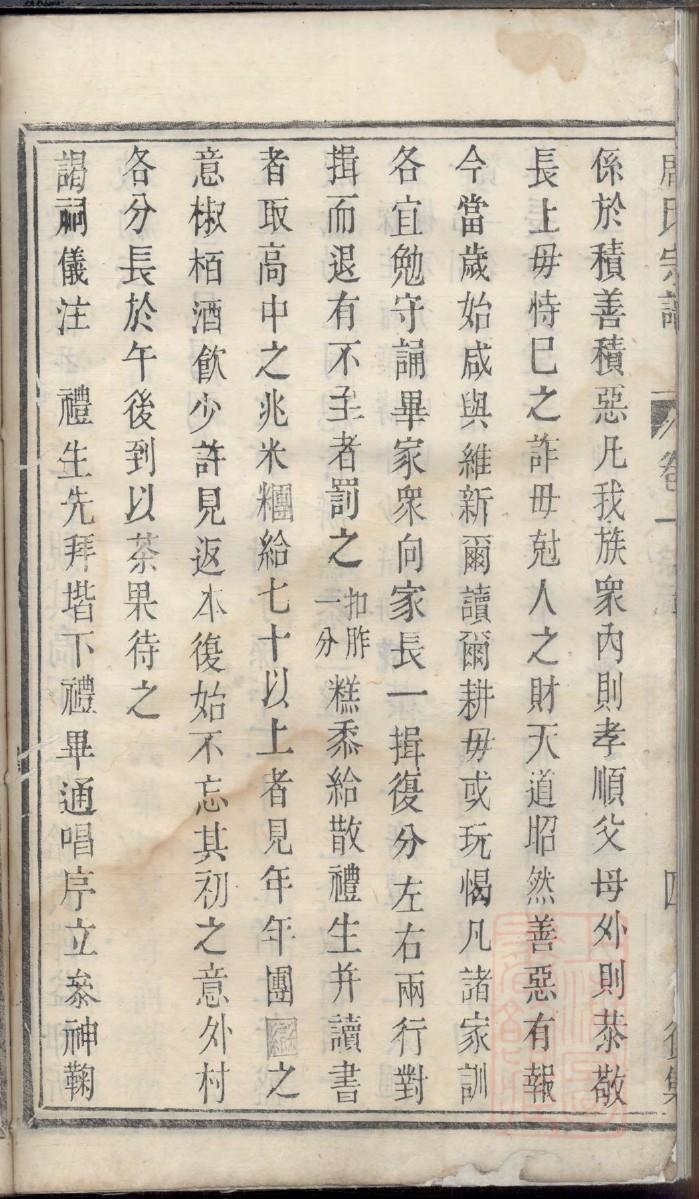 氏宗譜 卷一 四
係於積善積惡凡我族衆內則孝順父母外則恭敬
長上毋恃已之詐毋尅人之財天道昭然善惡有報
今當歲始咸與維新爾讀爾耕毋或玩愒凡諸家訓
各宜勉守誦畢家衆向家長一揖復分左右兩行對
揖而退有不至者罰之扣胙一分糕黍給散禮生并讀書
者取高中之兆米糰給七十以上者見年年團之
意椒栢酒飲少許見返本復始不忘其初之意外村
各分長於午後到以茶果待之
謁祠儀注 禮生先拜堦下禮畢通唱序立叅神鞠